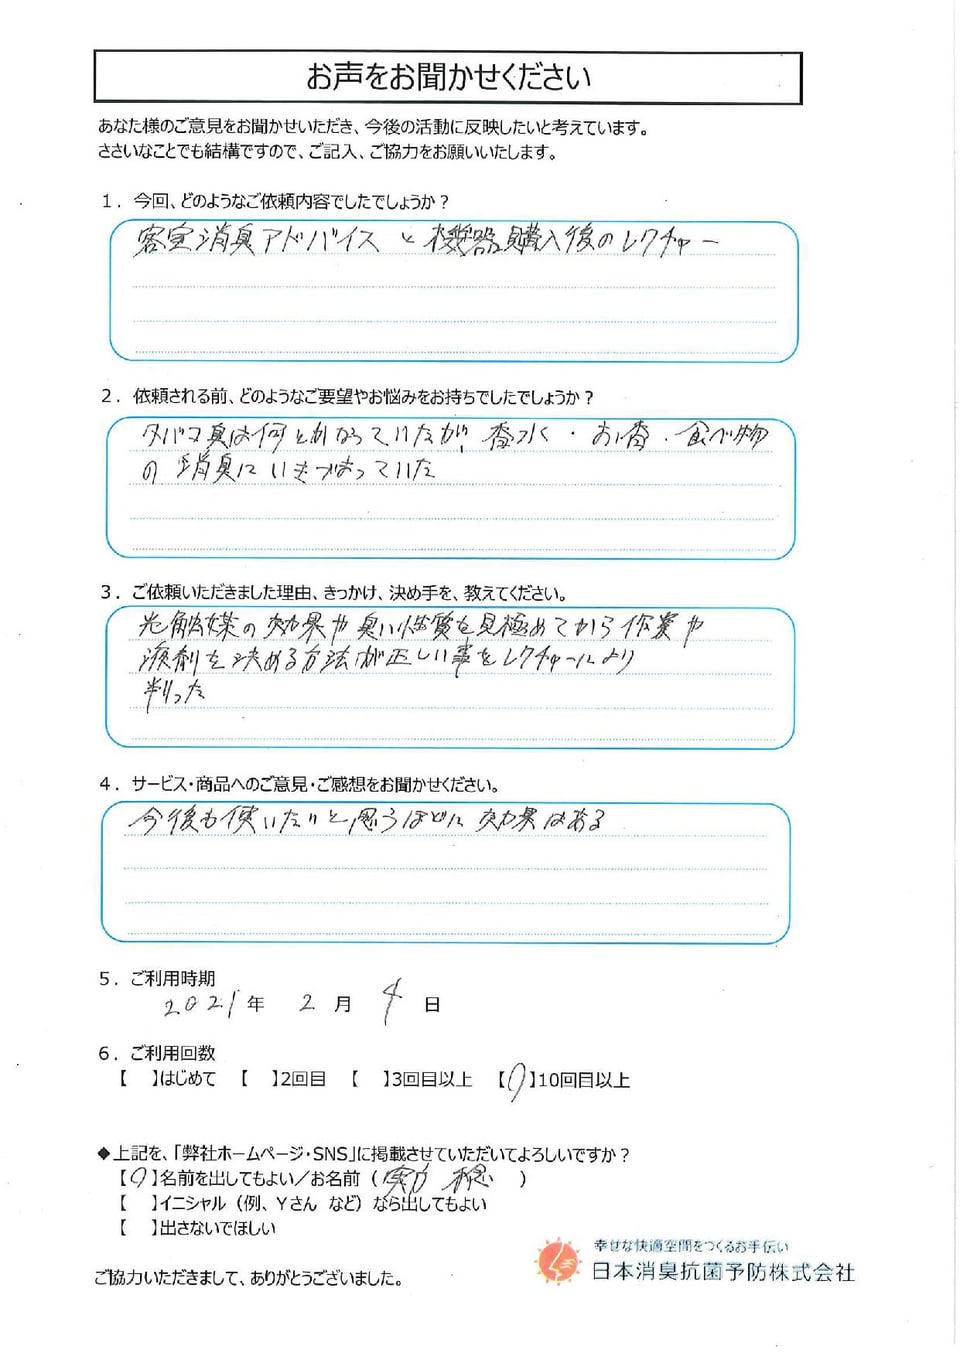 お声をお聞かせください
あなた様のご意見をお聞かせいただき、今後の活動に反映したいと考えています。
ささいなことでも結構ですので、ご記入、ご協力をお願いいたします。
１．今回、どのようなご依頼内容でしたでしょうか？
客室消臭アドバイスと機器購入後のレクチャー
２．依頼される前、どのようなご要望やお悩みをお持ちでしたでしょうか？
タバコ臭は何とかなっていたが、香水・お香・食べ物
の消臭にいきづまっていた
３．ご依頼いただきました理由、きっかけ、決め手を、教えてください。
光触媒の効果や臭い性質を見極めてから作業や
液剤を決める方法が正しい事をレクチャーにより
判った
４．サービス・商品へのご意見・ご感想をお聞かせください。
今後も使いたいと思うほどに効果はある
５．ご利用時期
2021年 2月 4日
６．ご利用回数
【　】はじめて 【　】2回目 【　】3回目以上 【〇】10回目以上
◆上記を、「弊社ホームページ・SNS」に掲載させていただいてよろしいですか？
【〇】名前を出してもよい／お名前（実方　）
【　】イニシャル（例、Yさん など）なら出してもよい
【　】出さないでほしい
ご協力いただきまして、ありがとうございました。
幸せな快適空間をつくるお手伝い
日本消臭抗菌予防株式会社